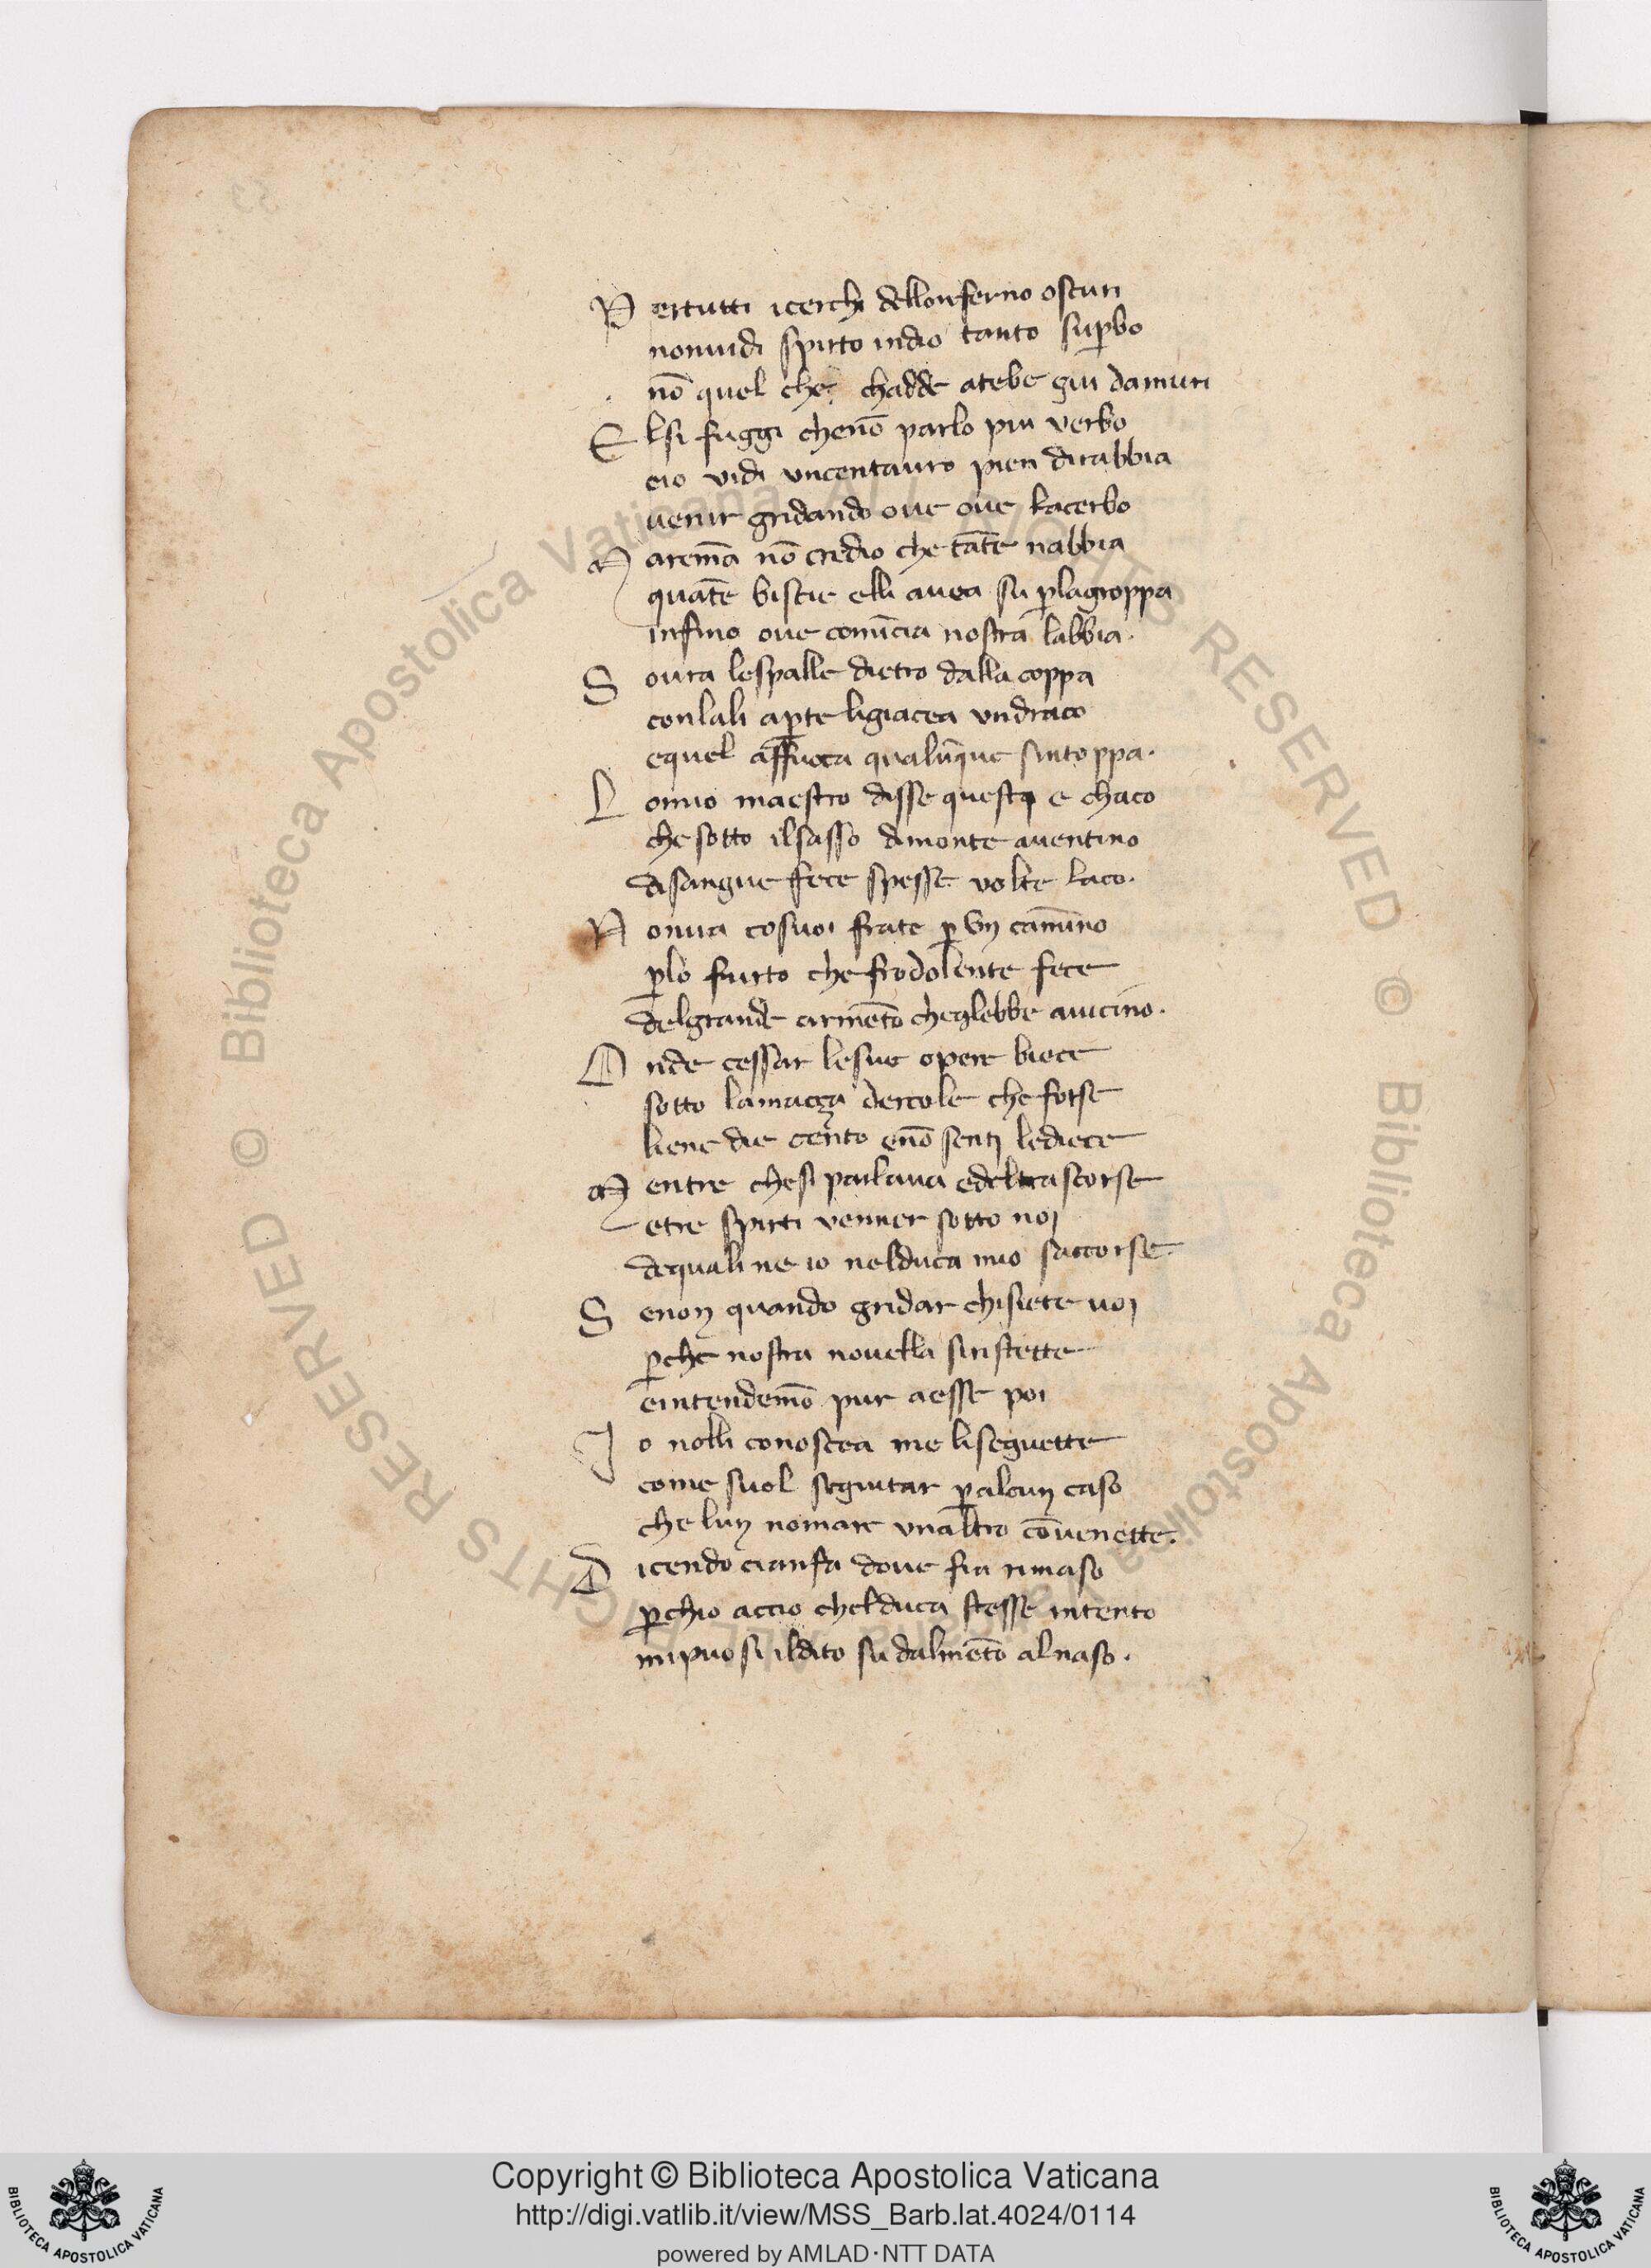 P ertutti icerchi dellonferno oscuri
nonuidi spirto indio tanto sup̄bo
nō quel che chadde atebe giu damuri
E lsi fuggi chenō parlo piu verbo
eio vidi vncentauro pien dirabbia
uenir gridando oue oue lacerbo
M aremā nō credio che tāte nabbia
quāte biscie elli auea su p̄lagroppa
infino oue comīcia nostra labbia.
S oura lespalle dietro dalla coppa
conlali ap̄te ligiacea vndraco
equel affuoca qualūque sintoppa.
L omio maestro disse questo e chaco
che sotto ilsasso dimonte auentino
disangue fece spesse volte laco.
N onua cosuoi frate p̄ vn camīno
p̄lo furto chefrodolente fece
delgrande armēto cheglebbe auicino.
O nde cessar lesue opere biece
sotto lamacza dercole che forse
liene die cento enō senti lediece
M entre chesi parlaua edeltrascorse
etre spirti venner sotto noi
dequali ne io nelduca mio saccorse
S enon quando gridar chisiete uoi
p̄che nostra nouella siristette
eintendemō pur aesse poi
I o nolli conoscea me liseguette
come suol seguitar p̄alcun caso
che lun nomare vnaltro cōuenette.
D icendo cianfa doue fia rimaso
p̄chio accio chelduca stesse intento
mipuosi ildito su dalmēto alnaso.
Copyright © Biblioteca Apostolica Vaticana
http://digi.vatlib.it/view/MSS_Barb.lat.4024/0114
powered by AMLAD·NTT DATA
BIBLIOTECA APOSTOLICA VATICANA
BIBLIOTECA APOSTOLICA VATICANA